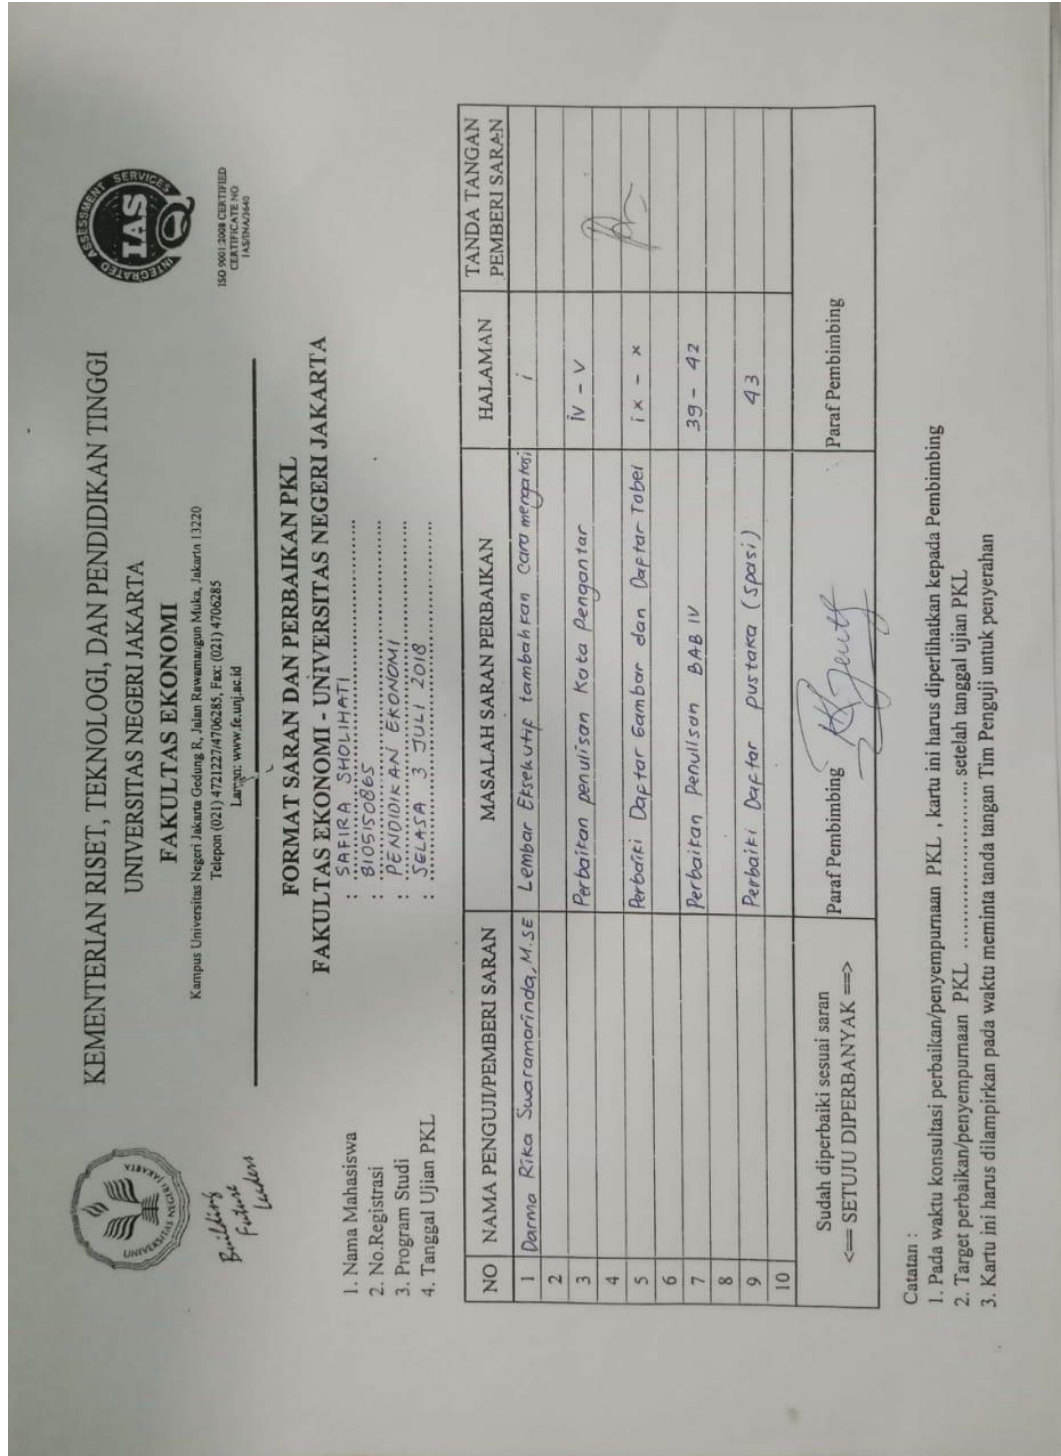 KEMENTERIAN RISET, TEKNOLOGI, DAN PENDIDIKAN TINGGI
UNIVERSITAS NEGERI JAKARTA
FAKULTAS EKONOMI
Kampus Universitas Negeri Jakarta Gedung R, Jalan Rawamangun Muka, Jakarta 13220
Telepon (021) 4721227/4706285, Fax: (021) 4706285
Laman: www.fe.unj.ac.id
UNIVERSITAS NEGERI JAKARTA
Building
Future
Leaders
INTEGRATED ASSESSMENT SERVICES
IAS
ISO 9001:2008 CERTIFIED
CERTIFICATE NO
IAS/INA/3640
FORMAT SARAN DAN PERBAIKAN PKL
FAKULTAS EKONOMI - UNIVERSITAS NEGERI JAKARTA
1. Nama Mahasiswa : SAFIRA SHOLIHATI
2. No.Registrasi : 8105150865
3. Program Studi : PENDIDIKAN EKONOMI
4. Tanggal Ujian PKL : SELASA 3 JULI 2018
NO NAMA PENGUJI/PEMBERI SARAN MASALAH SARAN PERBAIKAN HALAMAN TANDA TANGAN PEMBERI SARAN
1 Darma Rika Swaramarinda, M.SE Lembar Eksekutif tambahkan cara mengatasi i
2
3 Perbaikan penulisan Kata Pengantar iv - v
4
5 Perbaiki Daftar Gambar dan Daftar Tabel ix - x
6
7 Perbaikan Penulisan BAB IV 39 - 42
8
9 Perbaiki Daftar pustaka (spasi) 43
10
Sudah diperbaiki sesuai saran
<== SETUJU DIPERBANYAK ==>
Paraf Pembimbing
Paraf Pembimbing
Catatan :
1. Pada waktu konsultasi perbaikan/penyempurnaan PKL , kartu ini harus diperlihatkan kepada Pembimbing
2. Target perbaikan/penyempurnaan PKL ........................ setelah tanggal ujian PKL
3. Kartu ini harus dilampirkan pada waktu meminta tanda tangan Tim Penguji untuk penyerahan